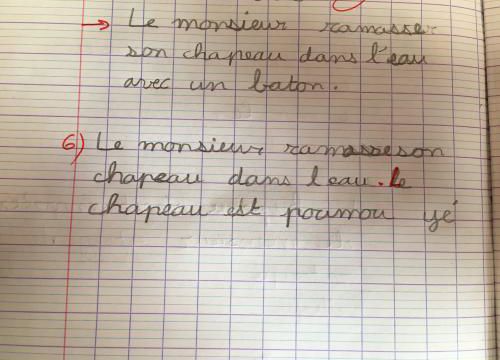 → Le monsieur ramasse
son chapeau dans l'eau
avec un baton.
6) Le monsieur ramasse son
chapeau dans l eau. le
chapeau est poumou yé